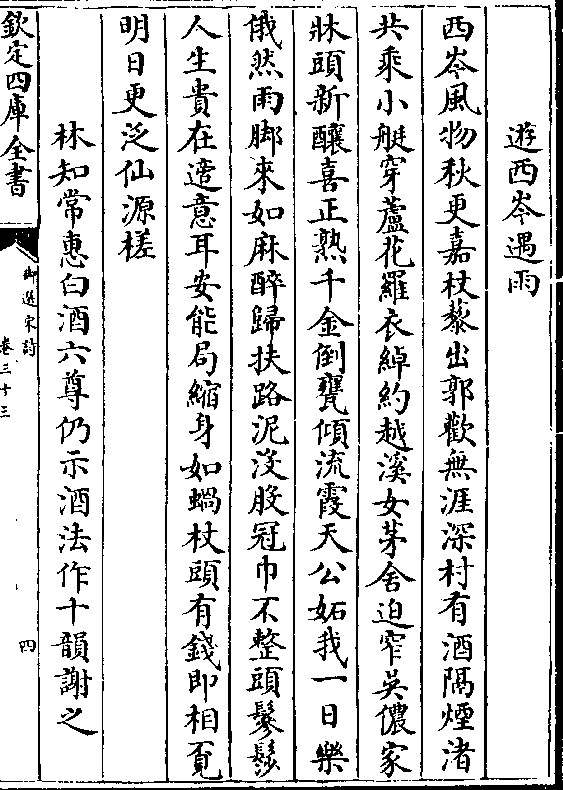 遊西岑遇雨
西岑風物秋更嘉杖藜出郭歡無涯深村有酒隔煙渚
共乘小艇穿蘆花羅衣綽約越溪女茅舍迫窄吳儂家
牀頭新釀喜正熟千金倒甕傾流霞天公妬我一日樂
俄然雨脚來如麻醉歸扶路泥沒股冠巾不整頭鬖髿
人生貴在適意耳安能局縮身如蝸杖頭有錢即相覔
明日更泛仙源槎
林知常惠白酒六尊仍示酒法作十韻謝之
欽定四庫全書
御選宋詩
卷三十三
四